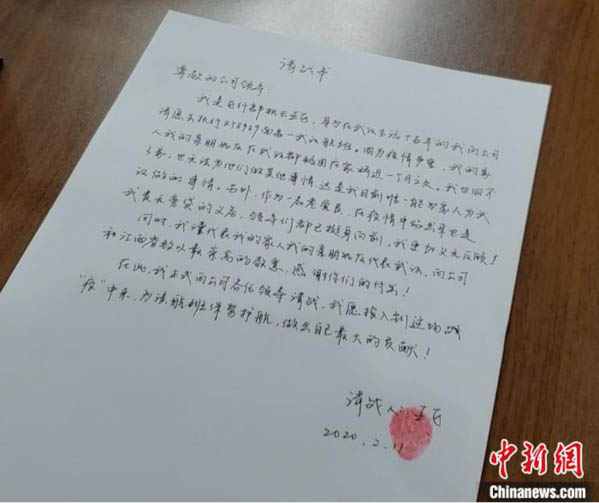 请战书
尊敬的公司领导：
我是飞行部机长王石，身为在武汉生活十五年的我向公司
请愿去执行RY8959南昌—武汉航班。因为疫情严重，我的家
人我的亲朋好友在武汉都被困在家将近一个月之久。我也回不
了家，也无法为他们做其他事情，这是我目前唯一能为家人为武
汉做的事情。另外，作为一名老党员，在疫情中的出来也是
我责无旁贷的义务，领导们都已挺身向前，我更加义无反顾！
同时，我谨代表我的家人我的亲朋好友代表武汉，向公司
和江西省致以最崇高的敬意，感谢你们的付出！
在此，我正式向公司各位领导请战，我愿投入到这场战
“疫”中来，为该航班保驾护航，做出自己最大的贡献！
请战人：
2020.2.11
中新网
Chinanews.com